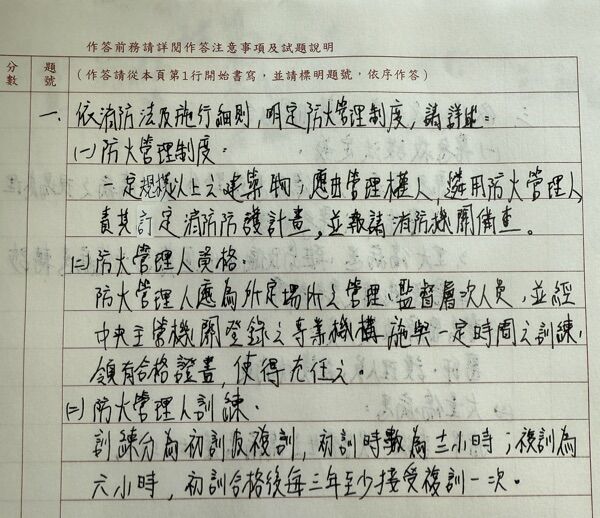 作答前務請詳閱作答注意事項及試題說明
分數 題號 (作答請從本頁第1行開始書寫，並請標明題號，依序作答)
一、依消防法及施行細則，明定防火管理制度，請詳述：
(一)防火管理制度：
一定規模以上之建築物，應由管理權人，遴用防火管理人，
責其訂定消防防護計畫，並報請消防機關備查。
(二)防火管理人資格：
防火管理人應為所定場所之管理、監督層次人員，並經
中央主管機關登錄之專業機構施與一定時間之訓練，
領有合格證書，使得充任之。
(三)防火管理人訓練：
訓練分為初訓及複訓，初訓時數為十二小時；複訓為
六小時，初訓合格後每三年至少接受複訓一次。